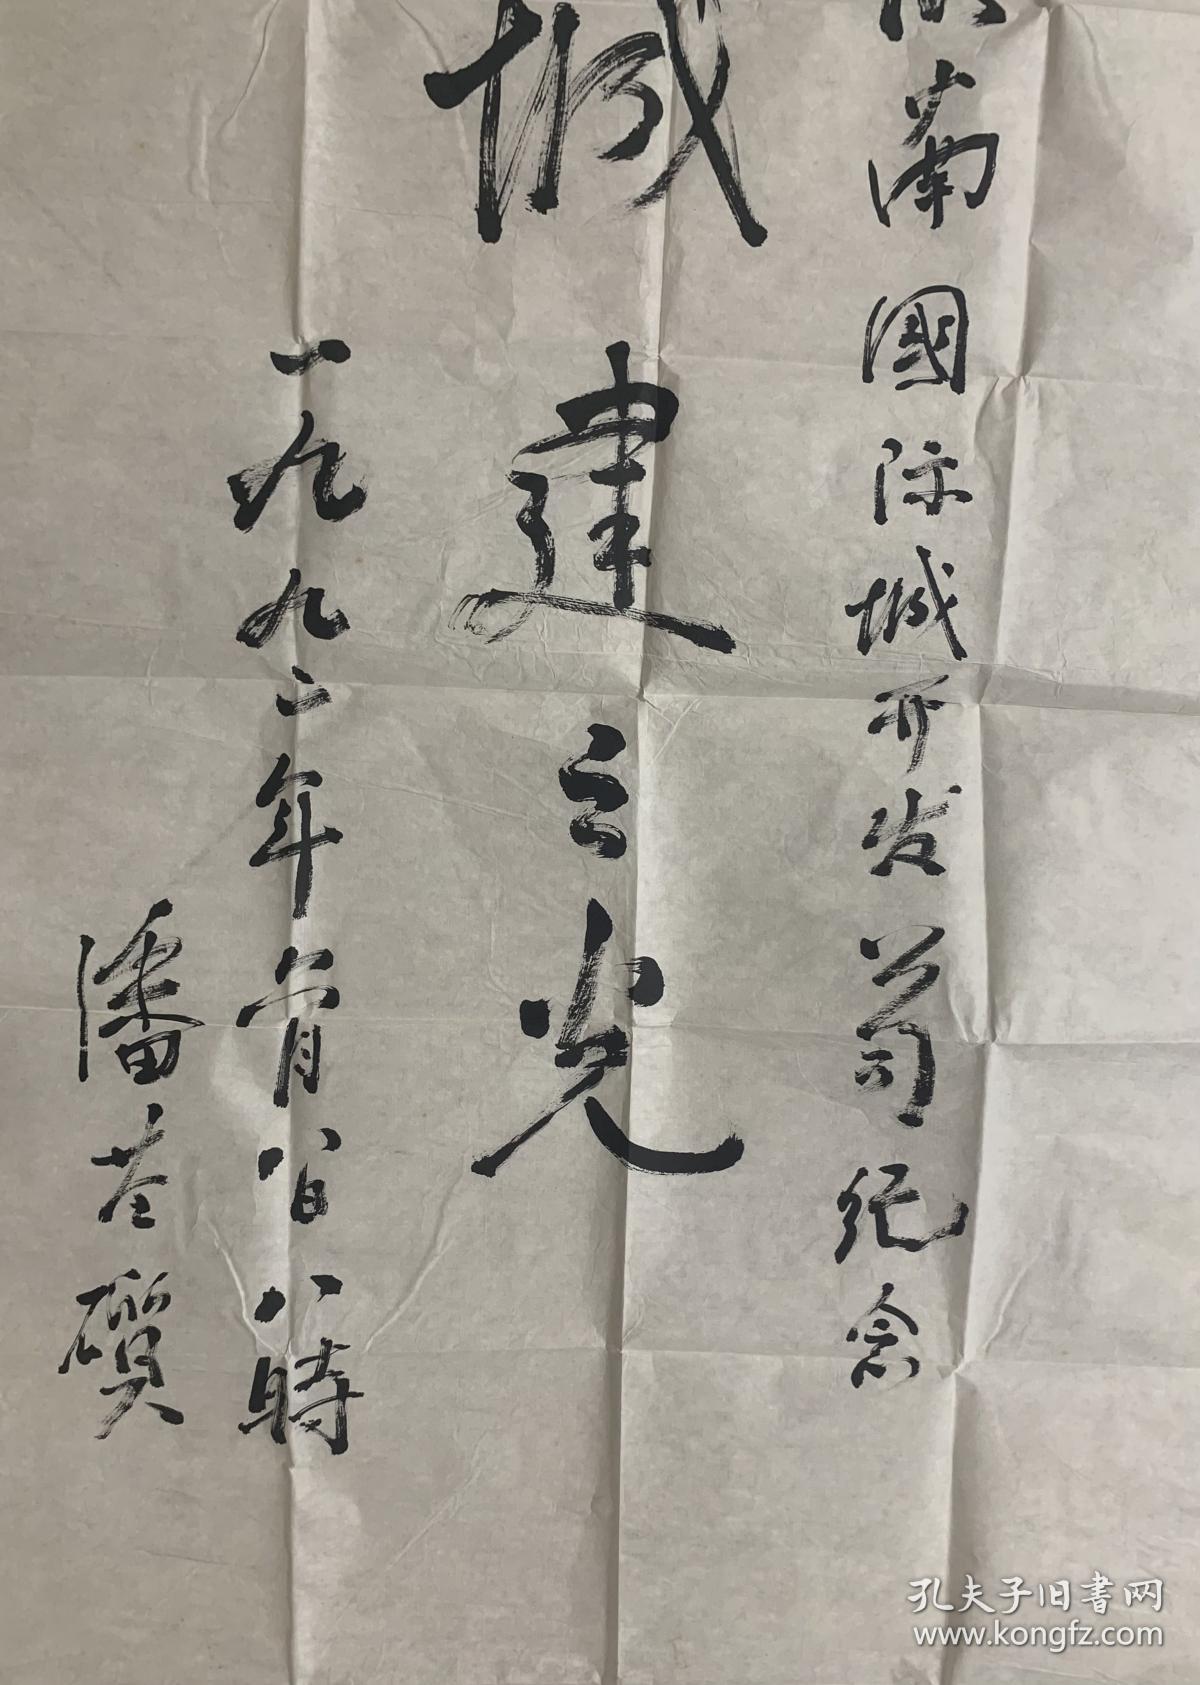 南國际城开发公司纪念
城建之光
一九九二年六月八日八時
潘基礩
孔夫子旧书网
www.kongfz.com